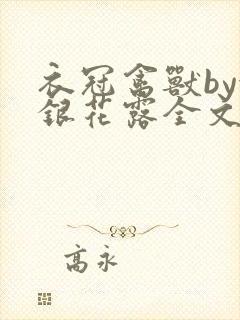 衣冠禽獸by
銀花露全文
高永